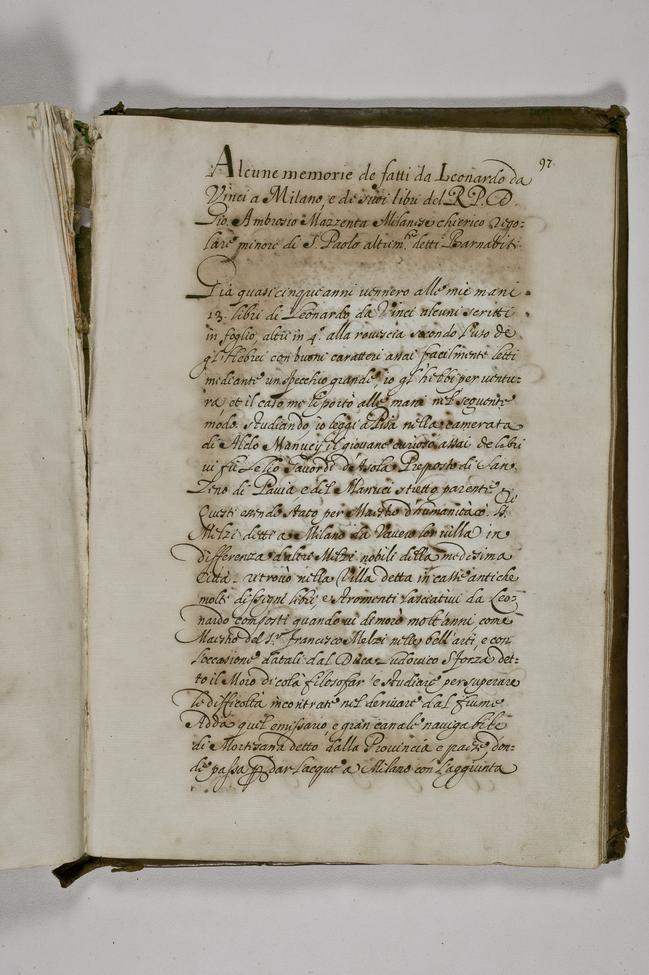 97.
Alcune memorie de fatti da Leonardo da
Vinci a Milano, e de suoi libri del R. P. D.
Gio. Ambrosio Mazzenta Milanese chierico rego-
lare minore di S. Paolo altrim.te detti Barnabiti
Già quasi cinque anni vennero alle mie mani
13. libri di Leonardo da Vinci alcuni scritti
in foglio, altri in 4.º alla rovescia secondo l'uso de
gl'Hebrei con buoni caratteri assai facilmente letti
mediante un specchio grande, io gl'hebbi per ventu-
ra, et il caso me li portò alle mani nel seguente
modo. studiando io leggi a Pisa nella camerata
di Aldo Manucij il giovane curioso assai de libri
vi fù Lelio Gavardi d'Asola Preposto di San
Zeno di Pavia e del Manuci stretto parente
Questi essendo stato per Maestro d'humanità
Melzi detti a Milano da Vavero lor villa in
differenza d'altri Melzi nobili della medesima
Città. ritrovò nella Villa detta in casse antiche
molti dissegni libri e stromenti lasciativi da Leo-
nardo quando vi dimorò molt'anni come
Maestro del S.r Francesco Melzi nelle bell'arti, e con
l'occasione datali dal Duca Ludovico Sforza det-
to il Moro di colà filosofar' e studiare per superare
le difficoltà incontrate nel derivare dal fiume
Adda quel emissario e gran canale navigabile
di Mortesana detto dalla Provincia e paese don-
de passa p dar l'acque a Milano con l'aggiunta